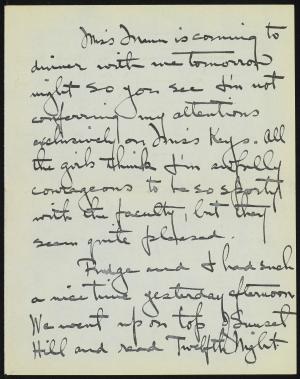 Miss Mann is coming to
dinner with me tomorrow
night so you see I'm not
conferring my attentions
exclusively on Miss Keys. All
the girls think I'm awfully
courageous to be so sporty
with the faculty, but they
seem quite pleased.
Fudge and I had such
a nice time yesterday afternoon
We went up on top of Sunset
Hill and read Twelfth Night